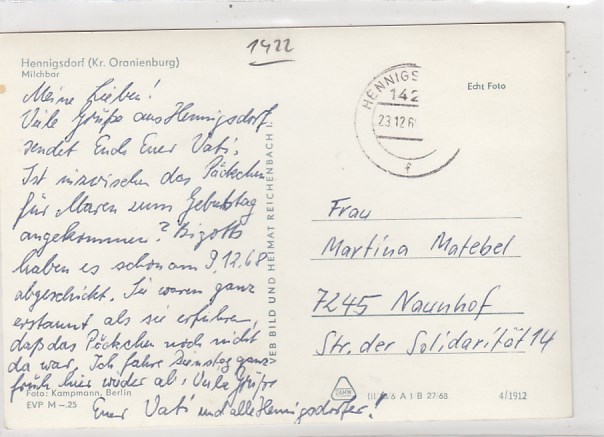 1422
Hennigsdorf (Kr. Oranienburg)
Milchbar
Echt Foto
HENNIGS
142
23.12.6
f
Meine Lieben!
Viele Grüße aus Hennigsdorf
sendet Euch Euer Vati.
Ist inzwischen das Päckchen
für Maren zum Geburtstag
angekommen?
haben es schon am 9.12.68
abgeschickt. Sie waren ganz
erstaunt als sie erfuhren,
daß das Päckchen noch nicht
da war. Ich fahre Dienstag ganz
früh hier wieder ab. Viele Grüße
Euer Vati und alle Hennigsdorfer!
VEB BILD UND HEIMAT REICHENBACH I.
Frau
Martina Matebel
7245 Naunhof
Str. der Solidarität 14
Foto: Kampmann, Berlin
EVP M –.25
A 1 B 27/68
4/1912